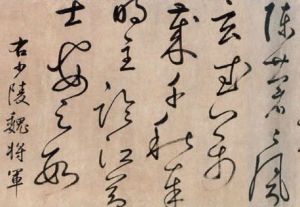 陳蒼〻風
玄武萬
歲千秋奉
明主臨江節
士安足數
右少陵魏將軍